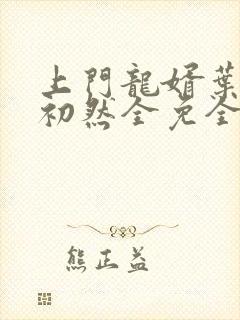 上門龍婿葉
初然全免全
熊正益